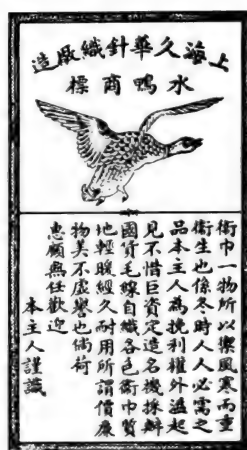 上海久華針織廠造
水鴨商標
衛巾一物所以禦風寒而重
衛生也係冬時人人必需之
品本主人為挽利權外溢起
見不惜巨資定造名機採辦
國貨毛線自織各色衛巾質
地輕暖經久耐用所謂價廉
物美不虛譽也倘荷
惠顧無任歡迎
本主人謹識